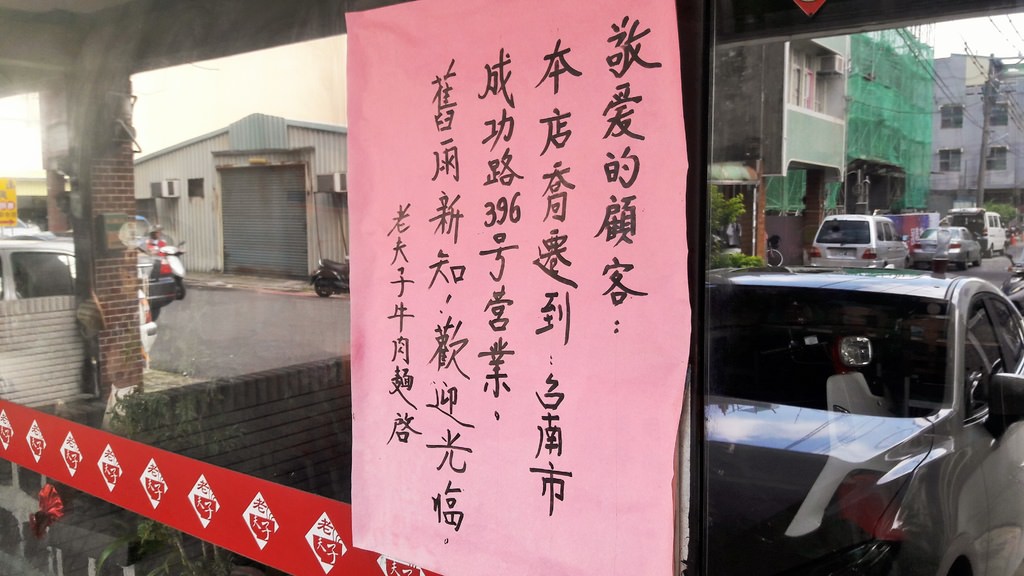 敬爱的顧客：
本店喬遷到：台南市
成功路396号營業，
舊雨新知，歡迎光臨。
老夫子牛肉麵啓
老夫子
老夫子
老夫子
老夫子
老夫子
老夫子
老夫子
老夫子
老夫子